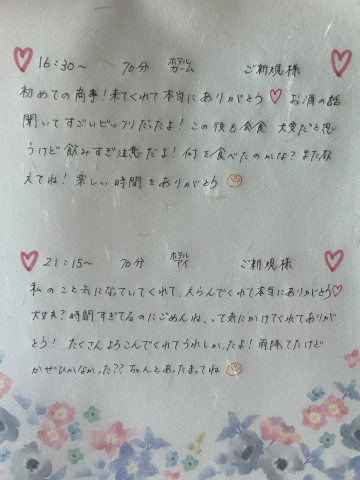 ♡ 16:30〜 70分 ホテルカーム ご新規様 ♡
初めての商事!来てくれて本当にありがとう♡ お酒の話
聞いてすごいビックリだったよ!この後も会食 大変だと思
うけど飲みすぎ注意だよ!何を食べたのかな?また教
えてね!楽しい時間をありがとう
♡ 21:15〜 70分 ホテルアイ ご新規様 ♡
私のこと気になっていてくれて、えらんでくれて本当にありがとう♡
大丈夫?時間すぎてるのにごめんね、って気にかけてくれてありが
とう! たくさんよろこんでくれてうれしかったよ! 雨降ってたけど
かぜひかなかった??ちゃんとあったまってね